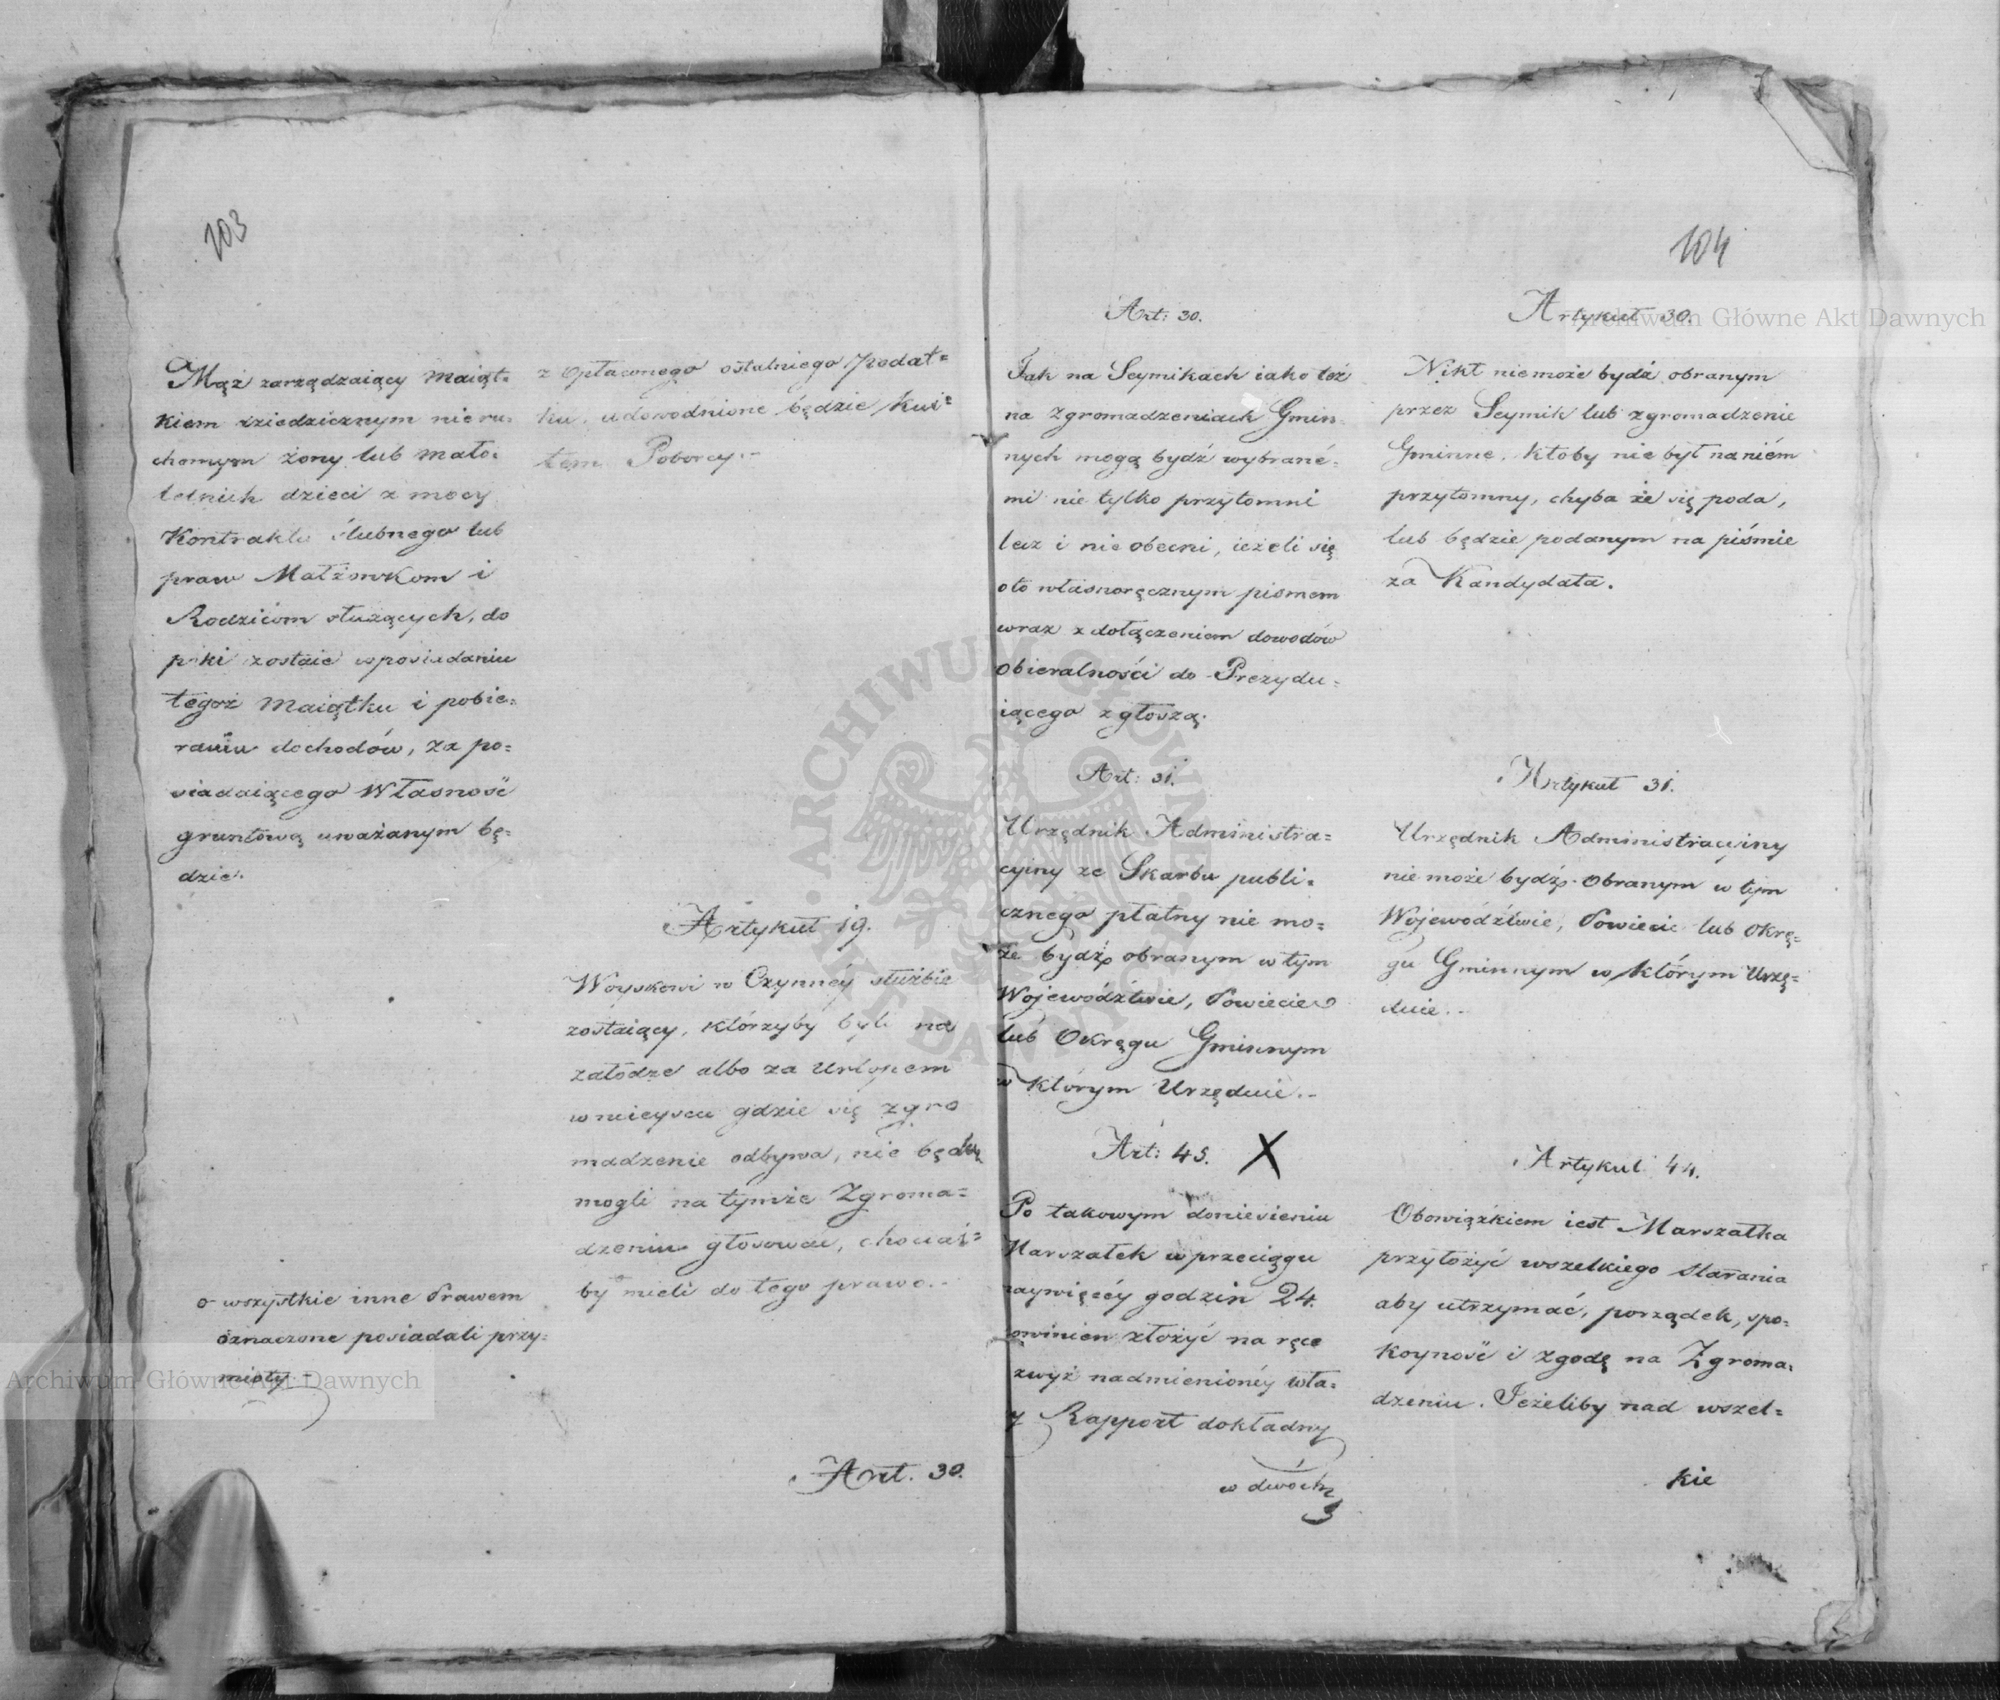 103
Mąż zarządzaiący Maiąt-
kiem dziedzicznym nieru-
chomym żony lub mało-
letnich dzieci z mocy
Kontraktu ślubnego lub
praw Małżonkom i
Rodzicom służących, do
póki zostaie w posiadaniu
tegoż Maiątku i pobie-
raniu dochodów, za po-
siadaiącego Własność
gruntową uważanym bę-
dzie.
z opłaconego ostatniego podat=
ku, udowodnione będzie kwi=
tem Poborcy.-
Artykuł 19.
Woyskowi w Czynnéy służbie
zostaiący, którzyby byli na
załodze albo za Urlopem
w mieyscu gdzie się zgro
madzenie odbywa, nie będą
mogli na tymże Zgroma=
dzeniu głosować, chociaż=
by mieli do tego prawo.-
wszystkie inne Prawem
oznaczone posiadali przy-
mioty
Art. 30.
104
Art: 30.
Jak na Seymikach iako też
na zgromadzeniach Gmin
nych mogą bydź wybrané-
mi nie tylko przytomni
lecz i nie obecni, ieżeli się
oto własnoręcznym pismem
wraz z dołączeniem dowodów
Obieralności do Prezydu-
iącego zgłoszą.
Art: 31.
Urzędnik Administra=
cyiny ze Skarbu publi-
cznego płatny nie mo-
że bydź obranym w tym
Województwie, Powiecie
lub Okręgu Gminnym
w którym Urzęduie.-
Art: 45. X
Po takowym doniesieniu
Marszałek w przeciągu
naywięcéy godzin 24.
powinien złożyć na ręce
zwyż nadmienionéy wła-
y Rapport dokładny
w dwóch
Artykuł 30.
Nikt nie może bydź obranym
przez Seymik lub zgromadzenie
Gminne, ktoby nie był na niém
przytomny, chyba że się poda,
lub będzie podanym na piśmie
za Kandydata.
Artykuł 31.
Urzędnik Administracyiny
nie może bydź obranym w tym
Województwie, Powiecie lub Okrę-
gu Gminnym w którym Urzę-
duie.-
Artykuł 44.
Obowiązkiem iest Marszałka
przyłożyć wszelkiego starania
aby utrzymać, porządek, spo-
koyność i zgodę na Zgroma-
dzeniu. Jeżeliby nad wszel=
kie
Archiwum Główne Akt Dawnych
Archiwum Główne Akt Dawnych
ARCHIWUM GŁÓWNE AKT DAWNYCH